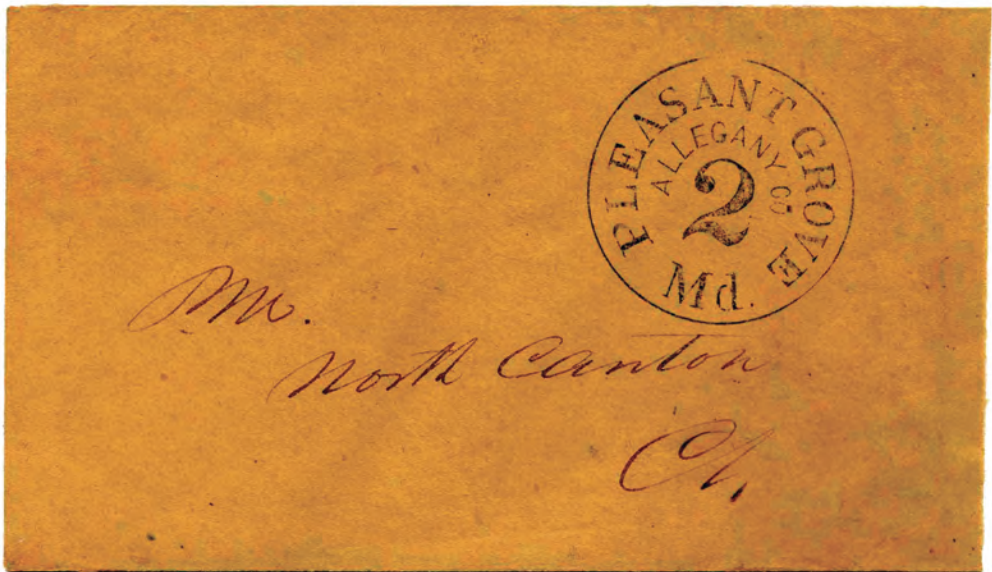 PLEASANT GROVE
ALLEGANY CO
2
Md.
PM.
North Canton
Ct.